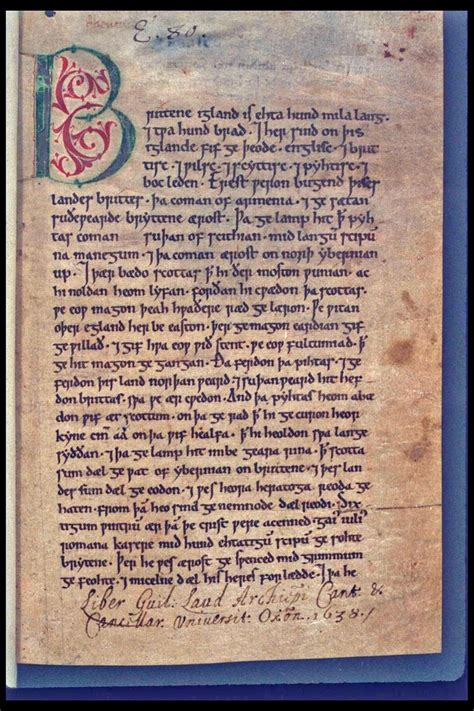 E. 80.
Brittene igland is ehta hund mila lang.
⁊ tƿa hund brad. ⁊ her sind on þis
iglande fif ge þeode. englisc. ⁊ brit
tisc. ⁊ ƿilsc. ⁊ scyttisc. ⁊ pyhtisc. ⁊
boc leden. Erest ƿeron bugend þises
landes brittes. þa coman of armenia. ⁊ ge sætan
suðeƿearde bryttene ærost. Þa ge lamp hit þ̄ pyh
tas coman suþan of scithian. mid langū scipū
na manegum. ⁊ þa coman ærost on norþ ybernian
up. ⁊ þær bædo scottas þ̄ hi ðer moston ƿunian. ac
hi noldan heom lyfan. forðan hi cƿædon þa scottas.
ƿe eoƿ magon þeah hƿaðere ræd ge læron. Ƿe ƿitan
oþer egland her be easton. þer ge magon eardian gif
ge ƿillað. ⁊ gif hƿa eoƿ ƿið stent. ƿe eoƿ fultumiað. þ̄
ge hit magon ge gangan. Ða ferdon þa pihtas. ⁊ ge
ferdon þis land norþan ƿeard. ⁊ suþan ƿeard hit hef
don brittas. sƿa ƿe ær cƿedon. And þa pyhtas heom abæ
don ƿif æt scottum. on þa ge rad þ̄ hi ge curon heor
kyne cinn aa on þa ƿif healfa. þ̄ hi heoldon sƿa lange
syððan. ⁊ þa ge lamp hit imbe geara rina. þ̄ scotta
sum dæl ge ƿat of ybernian on brittene. ⁊ þes lan
des sum dæl ge eodon. ⁊ ƿes heora heratoga reoda ge
haten. from þā heo sind ge nemnode dæl reodi. Six
tigum ƿintrū ær þā þe crist ƿere acenned. gaī iulī
romana kasere mid hund ehtatigū scipū ge sohte
brytene. Þer he ƿes ærost ge sƿenced mid grimmum
ge feohte. ⁊ micelne dæl his heres for lædde. ⁊ þa he
Liber Guil: Laud Archiepi Cant: &
Cancillar. Universit. Oxon. 1638.